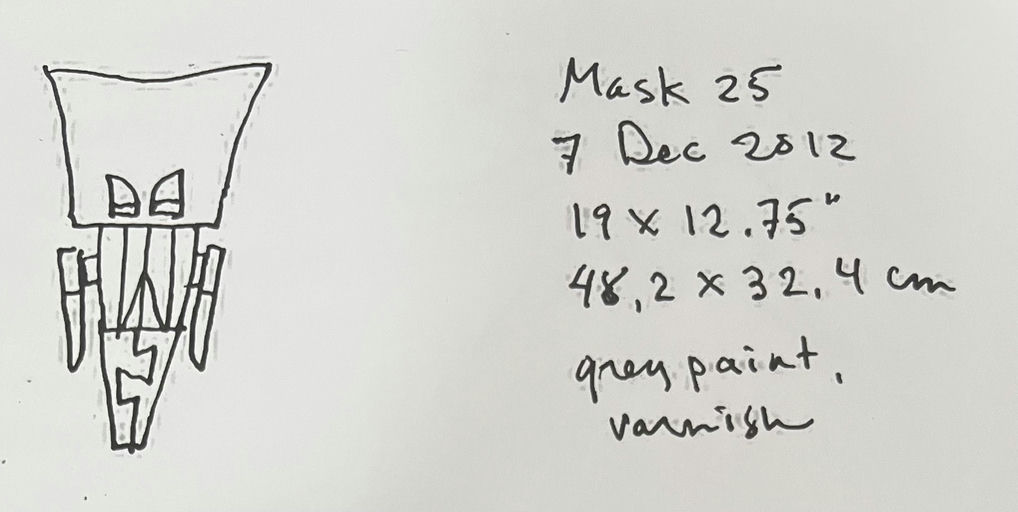 Mask 25
7 Dec 2012
19 x 12.75"
48,2 x 32,4 cm
grey paint,
varnish